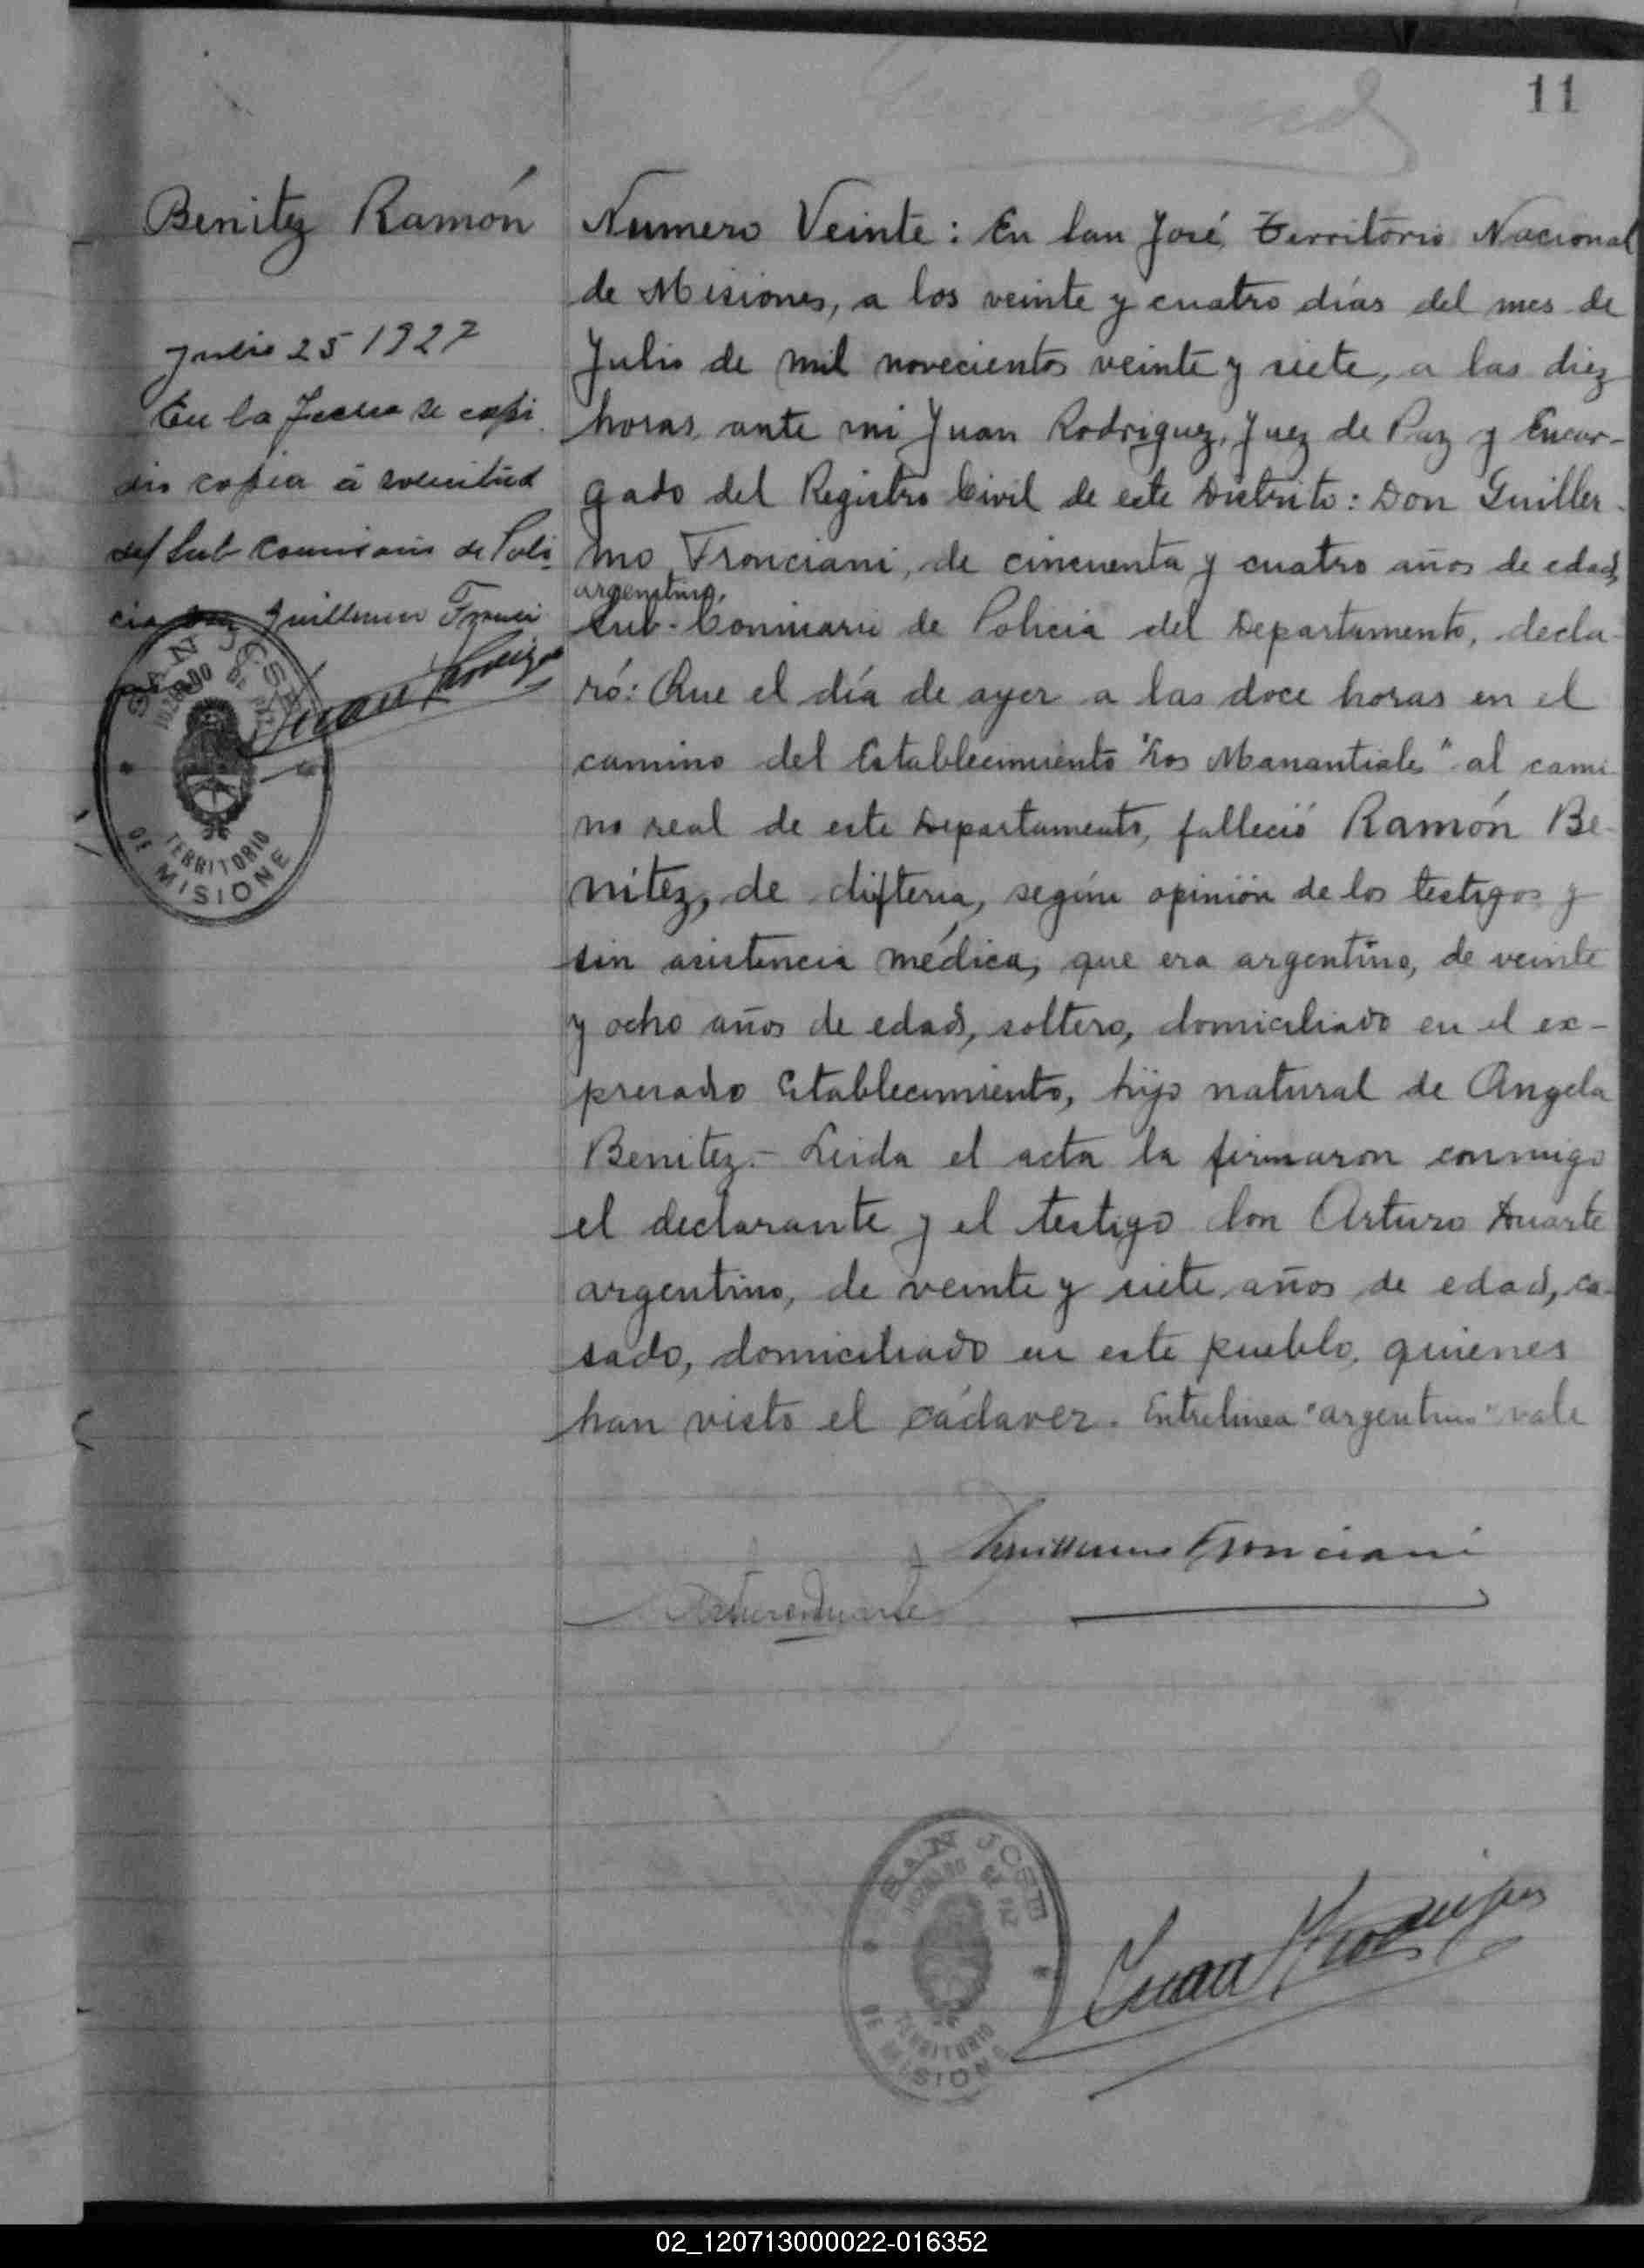 11
Benitez Ramón
Julio 25 1927
En la fecha se expi
dio copia á solicitud
del Sub Comisario de Poli
cia Don Guillermo Fronci
Juan Rodriguez
SAN JOSE
JUZGADO DE PAZ
TERRITORIO
DE MISIONE
Numero Veinte: En San José, Territorio Nacional
de Misiones, a los veinte y cuatro días del mes de
Julio de mil novecientos veinte y siete, a las diez
horas, ante mi Juan Rodriguez, Juez de Paz y Encar-
gado del Registro Civil de este Distrito: Don Guiller-
mo Fronciani, de cincuenta y cuatro años de edad,
argentino,
Sub-Comisario de Policia del Departamento, decla-
ró: Que el día de ayer a las doce horas en el
camino del Establecimiento "Los Manantiales" al cami-
no real de este Departamento, falleció Ramón Be-
nitez, de difteria, según opinión de los testigos y
sin asistencia médica, que era argentino, de veinte
y ocho años de edad, soltero, domiciliado en el ex-
presado Establecimiento, hijo natural de Angela
Benitez.- Leida el acta la firmaron conmigo
el declarante y el testigo don Arturo Duarte
argentino, de veinte y siete años de edad, ca-
sado, domiciliado en este pueblo, quienes
han visto el cádaver. Entrelinea "argentino" vale
Guillermo Fronciani
Arturo Duarte
SAN JOSE
JUZGADO DE PAZ
TERRITORIO
DE MISIONE
Juan Rodriguez
02_120713000022-016352